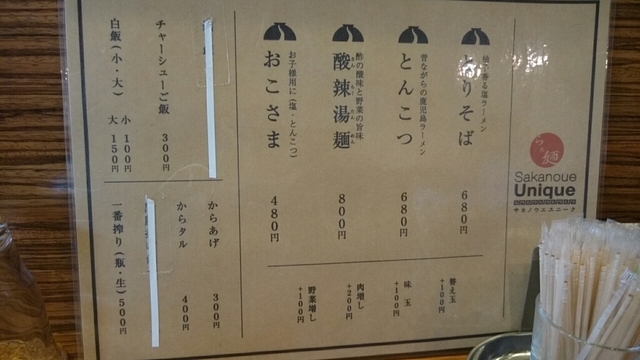 らぁ麺
Sakanoue
Unique
サカノウエユニーク
柚子香る塩ラーメン
とりそば
680円
昔ながらの鹿児島ラーメン
とんこつ
680円
酢の酸味と野菜の旨味
酸辣湯麺
さんらーたんめん
800円
お子様用に(塩・とんこつ)
おこさま
480円
替え玉
+100円
味玉
+100円
肉増し
+200円
野菜増し
+100円
チャーシューご飯
300円
白飯(小・大)
小 100円
大 150円
からあげ
300円
からタル
400円
一番搾り(瓶・生)500円